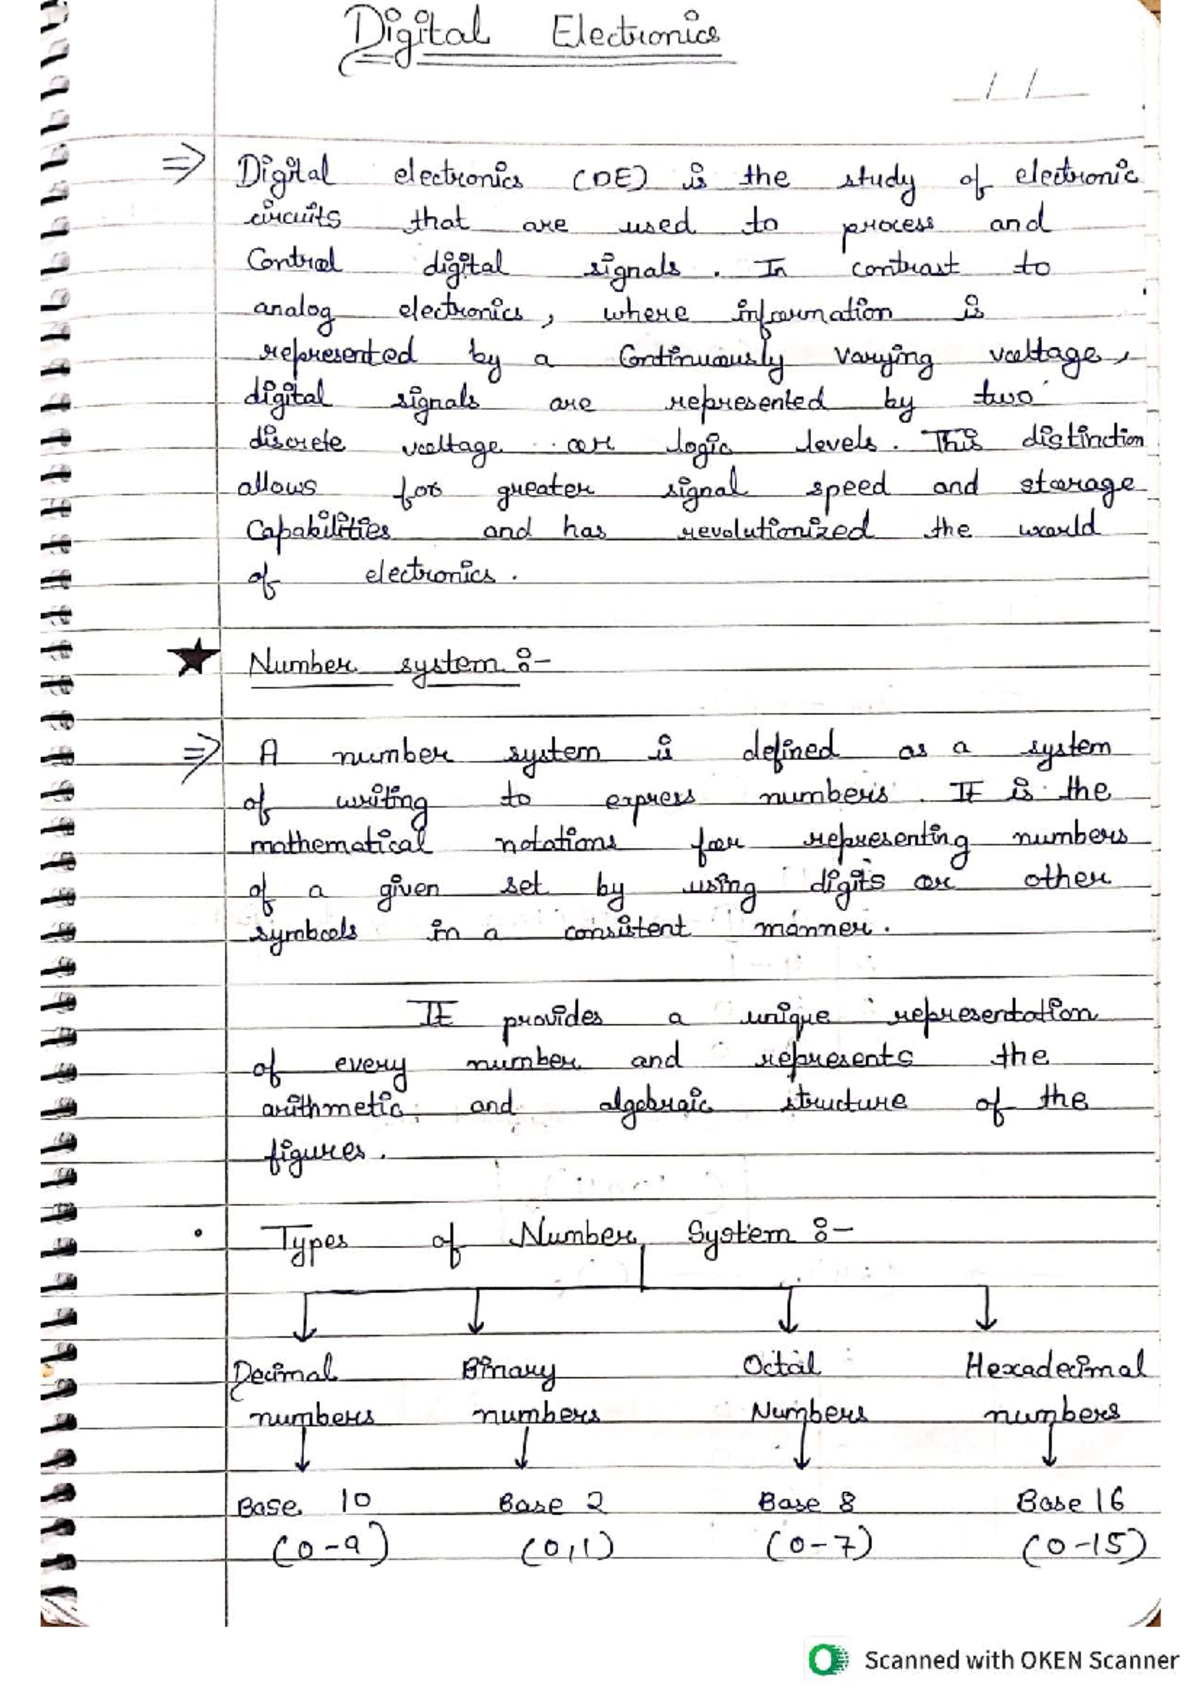 Digital Electronics
/ /
⇒ Digital electronics (DE) is the study of electronic
circuits that are used to process and
Control digital signals. In contrast to
analog electronics, where information is
represented by a Continuously varying voltage,
digital signals are represented by two
discrete voltage or logic levels. This distinction
allows for greater signal speed and storage
Capabilities and has revolutionized the world
of electronics.
★ Number system :-
⇒ A number system is defined as a system
of writing to express numbers. It is the
mathematical notations for representing numbers
of a given set by using digits or other
symbols in a consistent manner.
It provides a unique representation
of every number and represents the
arithmetic and algebraic structure of the
figures.
• Types of Number System :-
Decimal Binary Octal Hexadecimal
numbers numbers Numbers numbers
Base 10 Base 2 Base 8 Base 16
(0-9) (0,1) (0-7) (0-15)
Scanned with OKEN Scanner